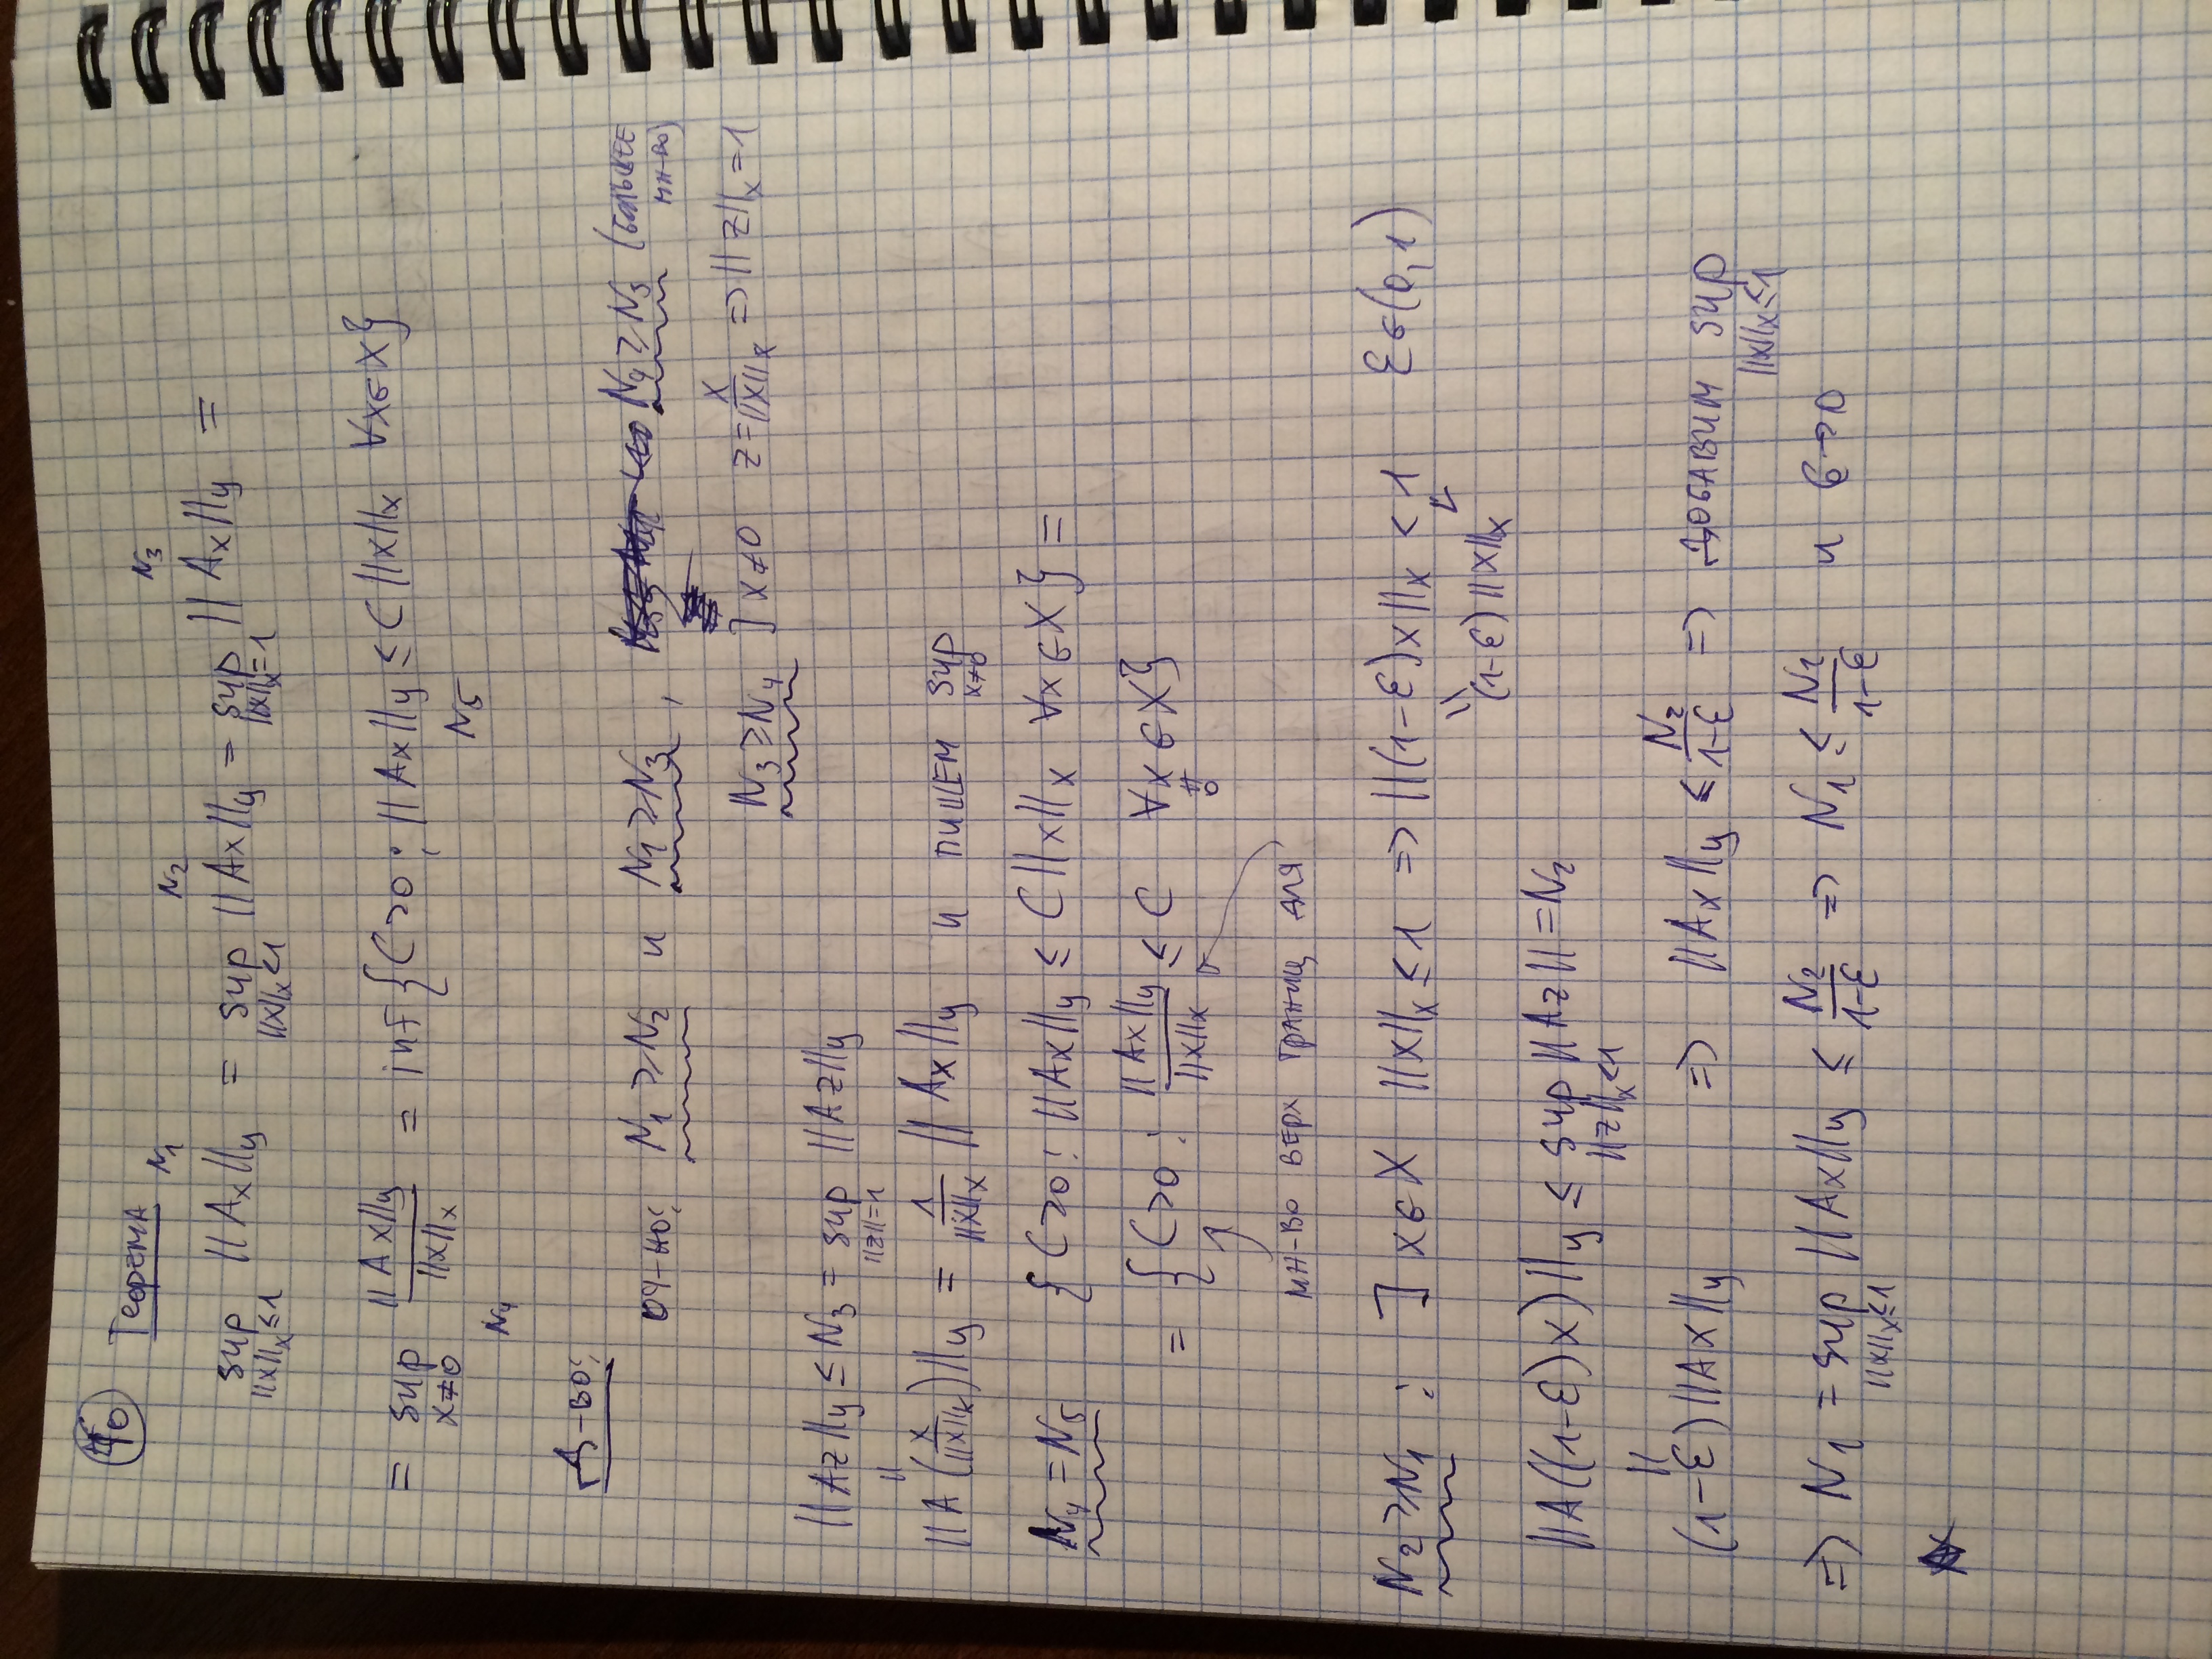 40 Теорема
N₁ N₂ N₃
sup ||Ax||y = sup ||Ax||y = sup ||Ax||y =
||x||x ≤ 1 ||x||x < 1 ||x||x = 1
= sup ||Ax||y / ||x||x = inf { C > 0 : ||Ax||y ≤ C ||x||x ∀x ∈ X }
x ≠ 0
N₄ N₅
Д-во:
оч-но: N₁ ≥ N₂ и N₁ ≥ N₃, N₄ ≥ N₃ (большее
мн-во)
N₃ ≥ N₄ ] x ≠ 0 z = x / ||x||x => ||z||x = 1
||Az||y ≤ N₃ = sup ||Az||y
||z|| = 1
||
||A (x / ||x||x)||y = 1 / ||x||x ||Ax||y и пишем sup
x ≠ 0
N₄ = N₅ { C > 0 : ||Ax||y ≤ C ||x||x ∀x ∈ X } =
= { C > 0 : ||Ax||y / ||x||x ≤ C ∀x ∈ X }
≠
0
мн-во верх границ для
N₂ ≥ N₁ : ] x ∈ X ||x||x ≤ 1 => ||(1-ε)x||x < 1 ε ∈ (0,1)
|| (1-ε) ||x||x
||A((1-ε)x)||y ≤ sup ||Az|| = N₂
||z||x < 1
||
(1-ε) ||Ax||y => ||Ax||y ≤ N₂ / 1-ε => добавим sup
||x||x ≤ 1
=> N₁ = sup ||Ax||y ≤ N₂ / 1-ε => N₁ ≤ N₂ / 1-ε и ε → 0
||x||x ≤ 1